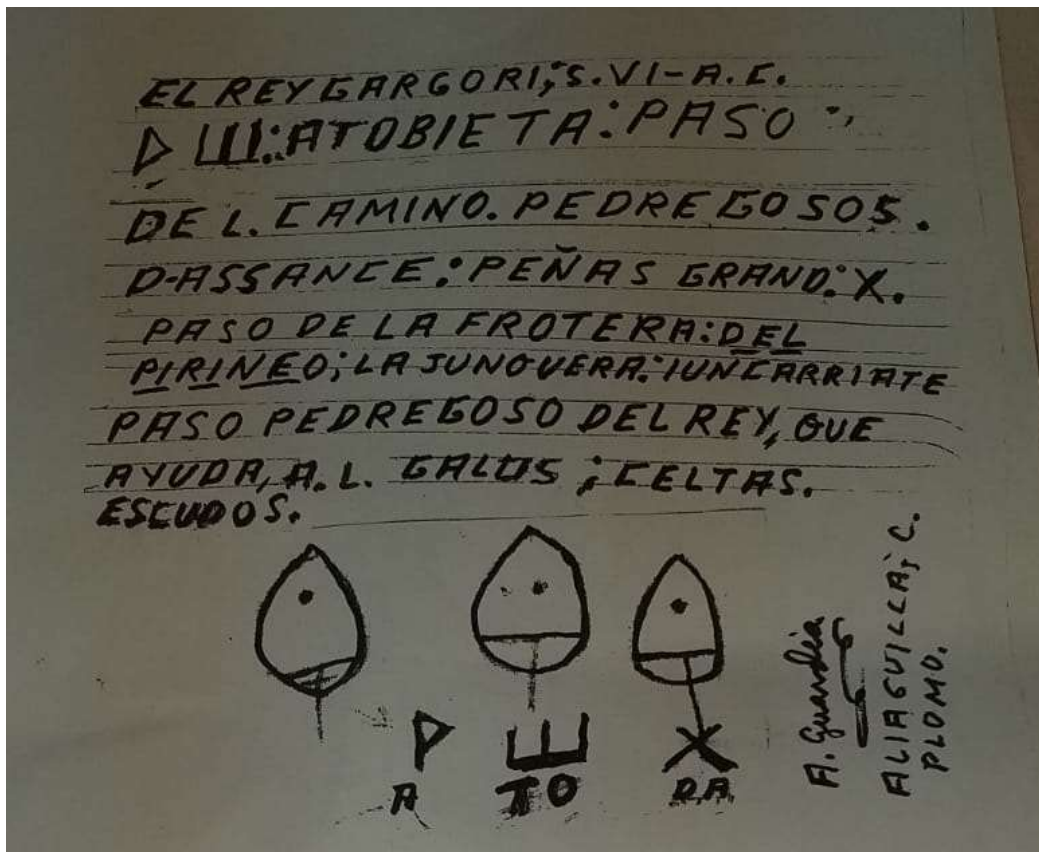 EL REY GARGORI; S. VI-A.C.
ATOBIETA: PASO
DEL. CAMINO. PEDREGOSOS.
D-ASSANCE: PEÑAS GRAND: X.
PASO DE LA FROTERA: DEL
PIRINEO; LA JUNQUERA: IUNCARRIATE
PASO PEDREGOSO DEL REY, QUE
AYUDA, A. L. GALOS; CELTAS.
ESCUDOS.
X
A TO DA
A. Guardia
ALIAGUILLA; C.
PLOMO.